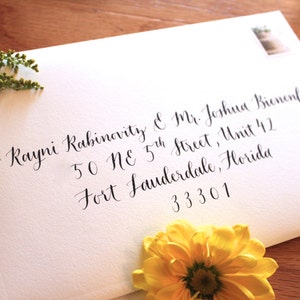 Rayni Rabinovitz & Mr. Joshua
50 NE 5th Street, Unit 42
Fort Lauderdale, Florida
33301